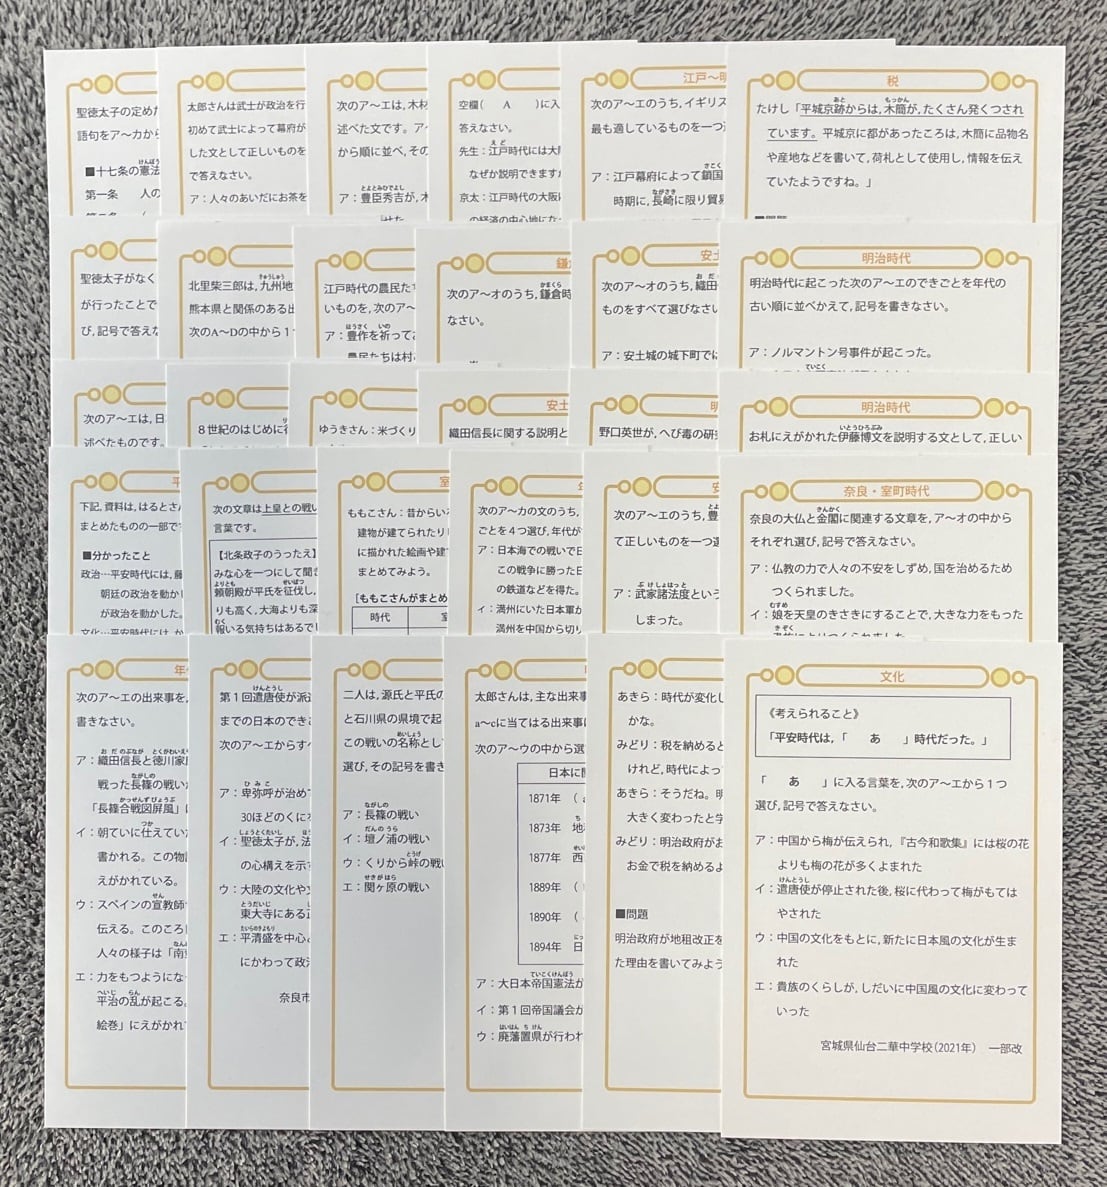 聖徳太子の定めた
語句をア～カから
■十七条の憲法
第一条 人の
太郎さんは武士が政治を行
初めて武士によって幕府が
した文として正しいものを
で答えなさい。
ア：人々のあいだにお茶を
次のア～エは，木材
述べた文です。ア～
から順に並べ，その
ア：豊臣秀吉が，木
空欄（ A ）に入
答えなさい。
先生：江戸時代には大阪
なぜか説明できますか
京太：江戸時代の大阪は
の経済の中心地にな
江戸～明
次のア～エのうち，イギリス
最も適しているものを一つ選
ア：江戸幕府によって鎖国
時期に，長崎に限り貿易
税
たけし「平城京跡からは，木簡が，たくさん発くつされ
ています。平城京に都があったころは，木簡に品物名
や産地などを書いて，荷札として使用し，情報を伝え
ていたようですね。」
聖徳太子がなく
が行ったことで
び，記号で答えな
北里柴三郎は，九州地
熊本県と関係のある出
次のA～Dの中から１
江戸時代の農民た
いものを，次のア～
ア：豊作を祈ってお
農民たちは村
鎌
次のア～オのうち，鎌倉時
なさい。
安土
次のア～オのうち，織田
ものをすべて選びなさい
ア：安土城の城下町では
明治時代
明治時代に起こった次のア～エのできごとを年代の
古い順に並べかえて，記号を書きなさい。
ア：ノルマントン号事件が起こった。
次のア～エは，日
述べたものです。
８世紀のはじめに
ゆうきさん：米づくり
安土
織田信長に関する説明と
明
野口英世が，へび毒の研
明治時代
お札にえがかれた伊藤博文を説明する文として，正しい
平
下記，資料は，はるとさん
まとめたものの一部です
■分かったこと
政治…平安時代には，藤
朝廷の政治を動かし
が政治を動かした。
次の文章は上皇との戦い
言葉です。
【北条政子のうったえ】
みな心を一つにして聞き
頼朝殿が平氏を征伐し，
りも高く，大海よりも深
報いる気持ちはあるでし
室
ももこさん：昔からい
建物が建てられたり
に描かれた絵画や建
まとめてみよう。
[ももこさんがまとめ
時代 室
年
次のア～カの文のうち，
ごとを４つ選び，年代が
ア：日本海での戦いで日
この戦争に勝った日
の鉄道などを得た。
イ：満州にいた日本軍が
満州を中国から切り
安
次のア～エのうち，豊
て正しいものを一つ選
ア：武家諸法度という
しまった。
奈良・室町時代
奈良の大仏と金閣に関連する文章を，ア～オの中から
それぞれ選び，記号で答えなさい。
ア：仏教の力で人々の不安をしずめ，国を治めるため
つくられました。
イ：娘を天皇のきさきにすることで，大きな力をもった
年
次のア～エの出来事を，
書きなさい。
ア：織田信長と徳川家康
戦った長篠の戦い
「長篠合戦図屏風」に
イ：朝ていに仕えてい
書かれる。この物
えがかれている。
ウ：スペインの宣教師
伝える。このころ
人々の様子は「南
エ：力をもつようにな
平治の乱が起こる。
絵巻」にえがかれて
第１回遣唐使が派
までの日本のできご
次のア～エからす
ア：卑弥呼が治め
30ほどのくに
イ：聖徳太子が，法
の心構えを示す
ウ：大陸の文化や文
東大寺にある正
エ：平清盛を中心と
にかわって政治
奈良市
二人は，源氏と平氏の
と石川県の県境で起
この戦いの名称とし
選び，その記号を書き
ア：長篠の戦い
イ：壇ノ浦の戦い
ウ：くりから峠の戦い
エ：関ヶ原の戦い
太郎さんは，主な出来事
a～cに当てはる出来事
次のア～ウの中から選
日本に関
1871年 （ a
1873年 地
1877年 西
1889年 （
1890年 （
1894年 日
ア：大日本帝国憲法が
イ：第１回帝国議会が
ウ：廃藩置県が行われ
あきら：時代が変化し
かな。
みどり：税を納めると
けれど，時代によっ
あきら：そうだね。明
大きく変わったと学
みどり：明治政府がお
お金で税を納めるよ
■問題
明治政府が地租改正を
た理由を書いてみよう
文化
《考えられること》
「平安時代は，「 あ 」時代だった。」
「 あ 」に入る言葉を，次のア～エから１つ
選び，記号で答えなさい。
ア：中国から梅が伝えられ，『古今和歌集』には桜の花
よりも梅の花が多くよまれた
イ：遣唐使が停止された後，桜に代わって梅がもては
やされた
ウ：中国の文化をもとに，新たに日本風の文化が生ま
れた
エ：貴族のくらしが，しだいに中国風の文化に変わって
いった
宮城県仙台二華中学校（2021年） 一部改